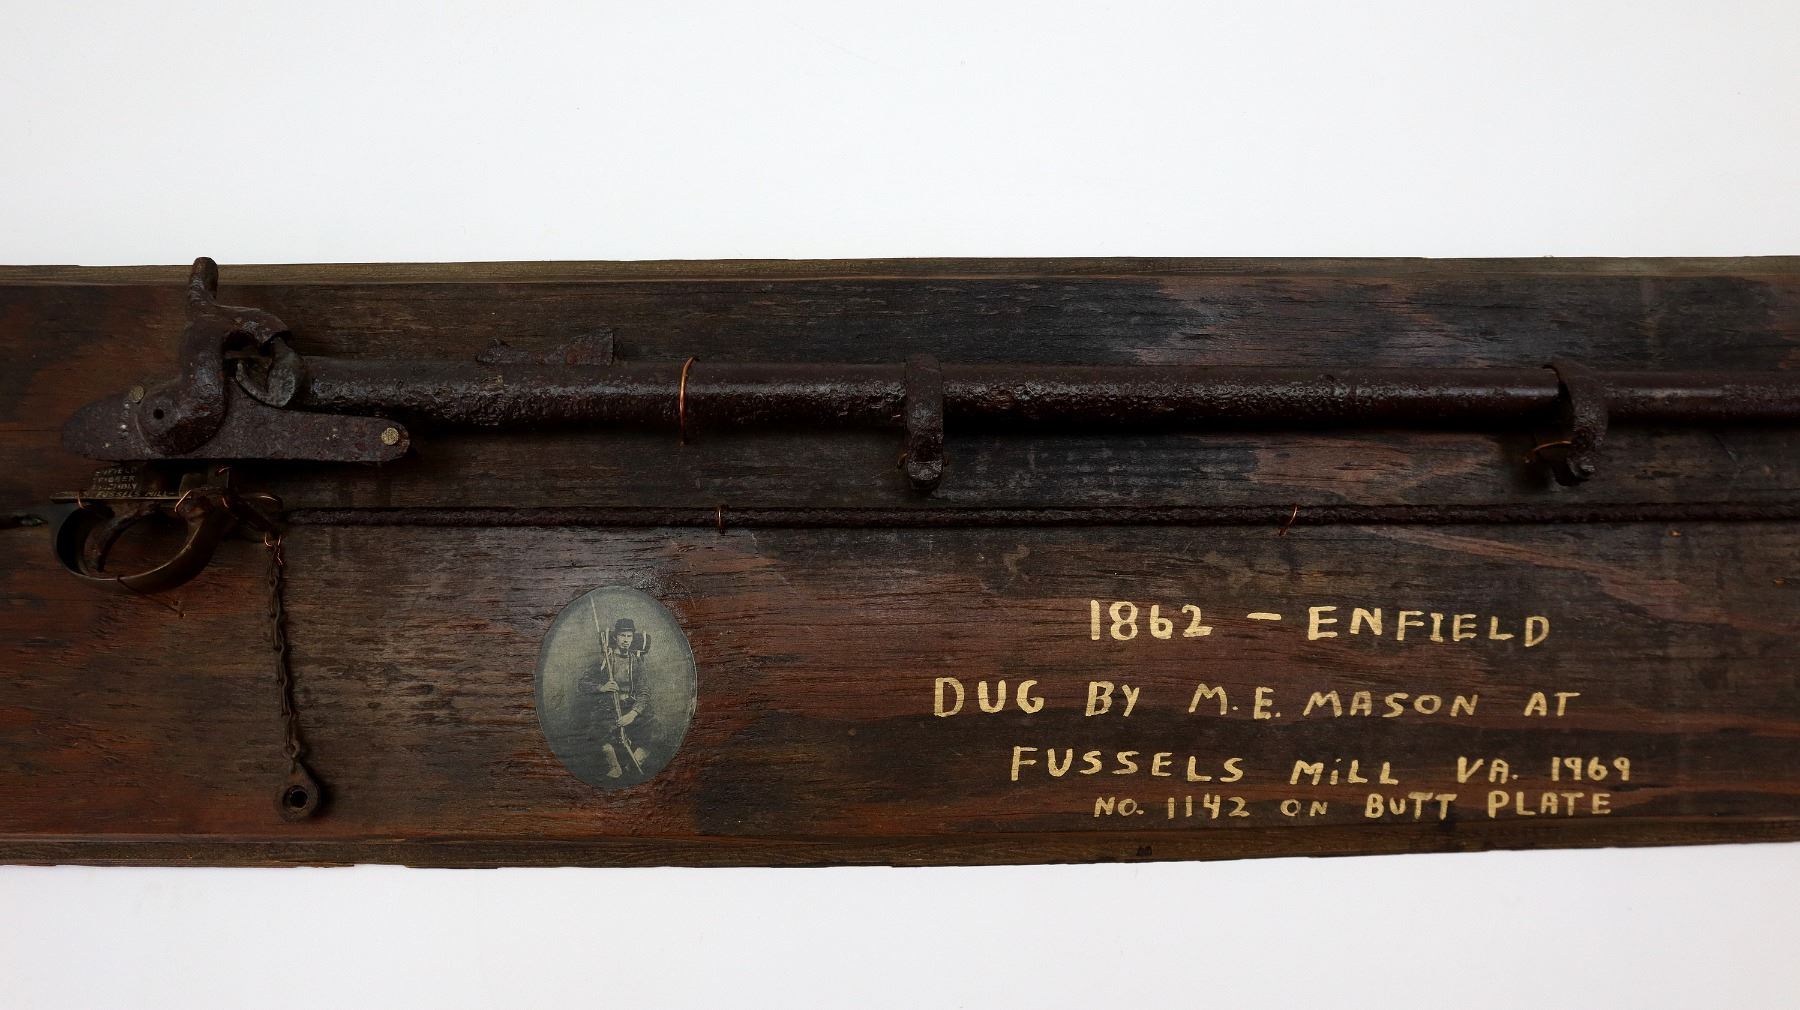 ENFIELD
TRIGGER
ASSEMBLY
FUSSELS MILL
1862 - ENFIELD
DUG BY M.E. MASON AT
FUSSELS MiLL VA. 1969
NO. 1142 ON BUTT PLATE